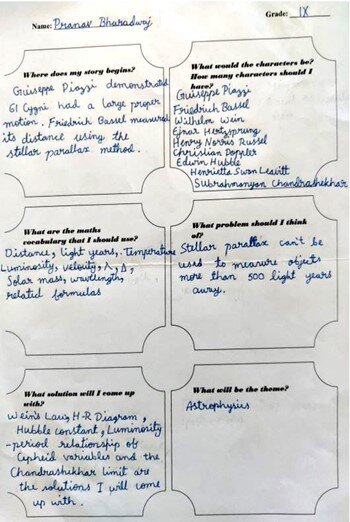 Name: Pranav Bharadwaj
Grade: IX
Where does my story begins?
Guiseppe Piazzi demonstrated
61 Cygni had a large proper
motion. Friedrich Bassel measured
its distance using the
stellar parallax method.
What would the characters be?
How many characters should I
have?
Guiseppe Piazzi
Friedrich Bassel
Wilhelm Wein
Ejnar Hertzsprung
Henry Norris Russel
Christian Doppler
Edwin Hubble
Henrietta Swan Leavitt
Subrahmanyan Chandrashekhar
What are the maths
vocabulary that I should use?
Distance, light years, Temperature
Luminosity, velouty, λ, Δ,
Solar mass, wavelength,
related formulas
What problem should I think
of?
Stellar parallax can't be
used to measure objects
more than 500 light years
away.
What solution will I come up
with?
Wein's Law, H-R Diagram,
Hubble constant, Luminosity
-period relationship of
Cepheid variables and the
Chandrashekhar limit are
the solutions I will come
up with.
What will be the theme?
Astrophysics